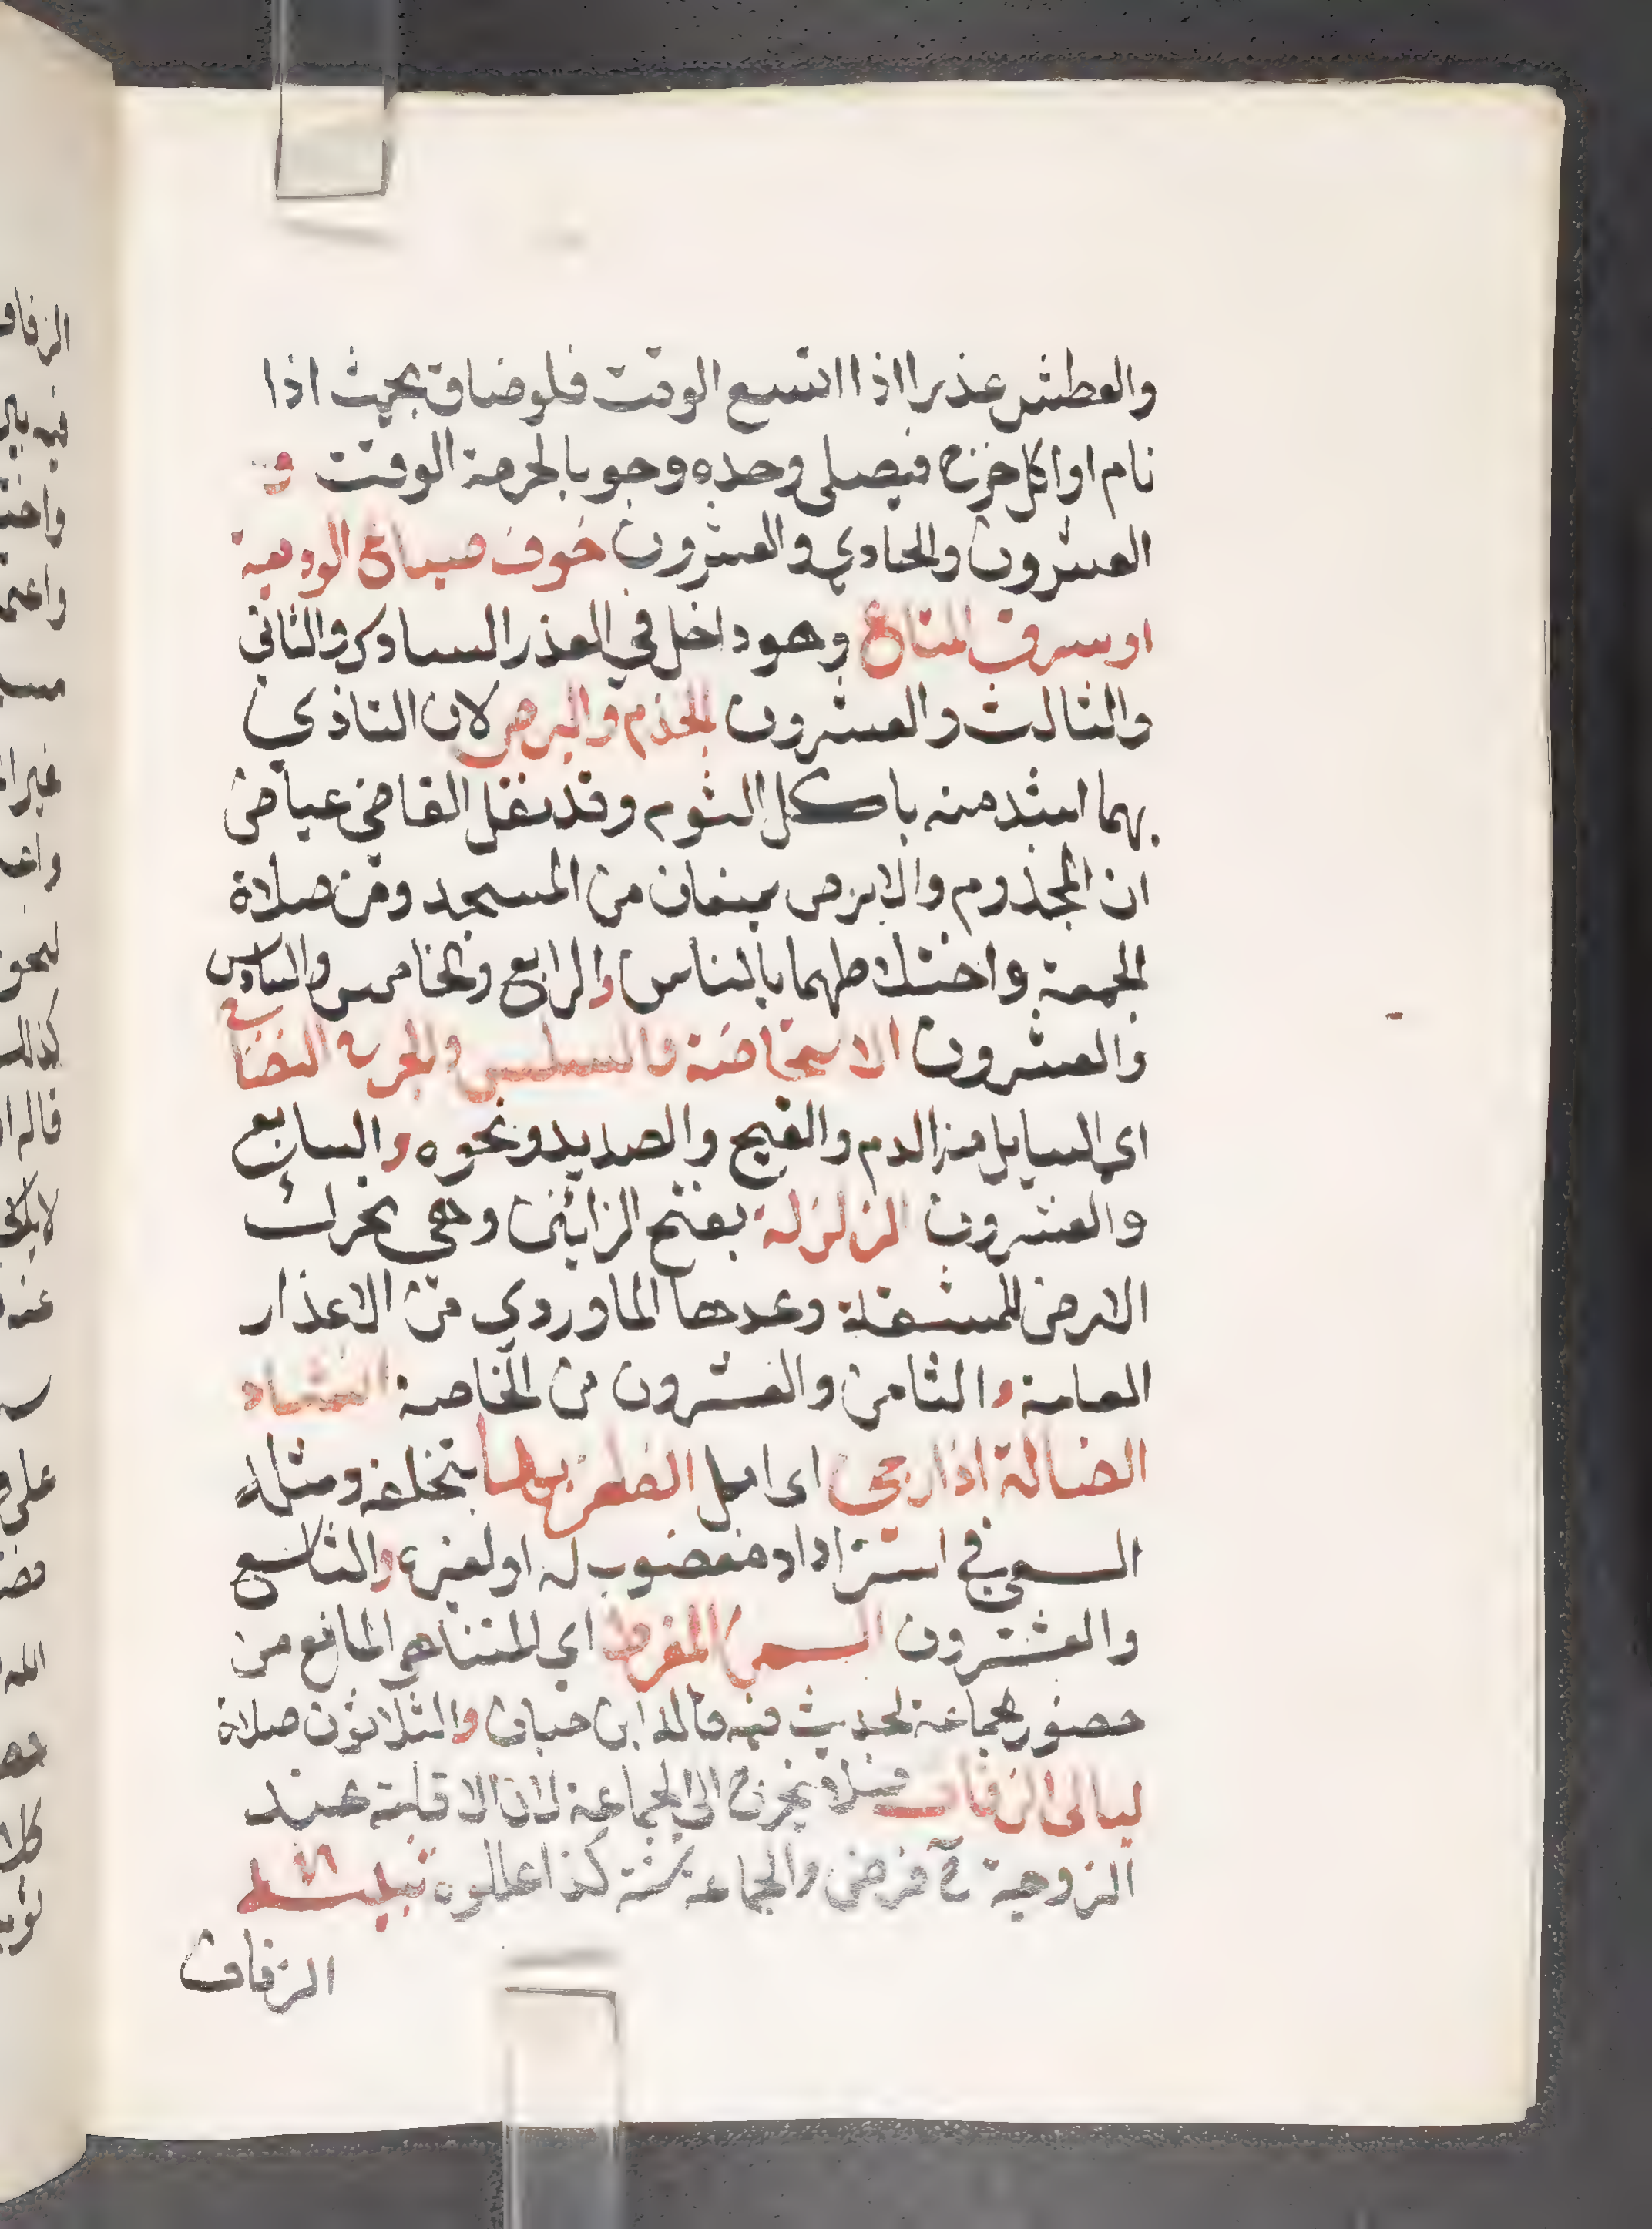 والعطش عذرا اذا اتسع الوقت فلو ضاق بحيث اذا
نام او اكل خرج فيصلي وحده وجوبا لحرمة الوقت و
العشرون والحادي والعشرون خوف ضياع الوديعة
او سرق المتاع وهو داخل في العذر السادس والثاني
والثالث والعشرون الجذم والبرص لان التاذي
بهما اشد منه باكل الثوم وقد نقل القاضي عياض
ان المجذوم والابرص يمنعان من المسجد ومن صلاة
الجمعة واختلاطهما بالناس والرابع والخامس والسادس
والعشرون الاستحاضة والسلس والجرح النضاح
اي السايل منه الدم والقيح والصديد ونحوه والسابع
والعشرون الزلزلة بفتح الزائين وهي تحرك
الارض للمشقة وعدها الماوردي من الاعذار
العامة والثامن والعشرون من الخاصة انشاد
الضالة اذا رجى اى امل الظفر بها بتخلفه ومثله
السعي في استرداد مغصوب له او لغيره والتاسع
والعشرون السمن المفرط اي المتناهي المانع من
حضور الجماعة لحديث فيه قاله ابن حبان والثلاثون صلاة
ليالى الزفاف فلا يخرج الى الجماعة لان الاقامة عند
الزوجة ح فرض والجماعة سنة كذا عللوه تنبيه
الزفاف
الزفاف